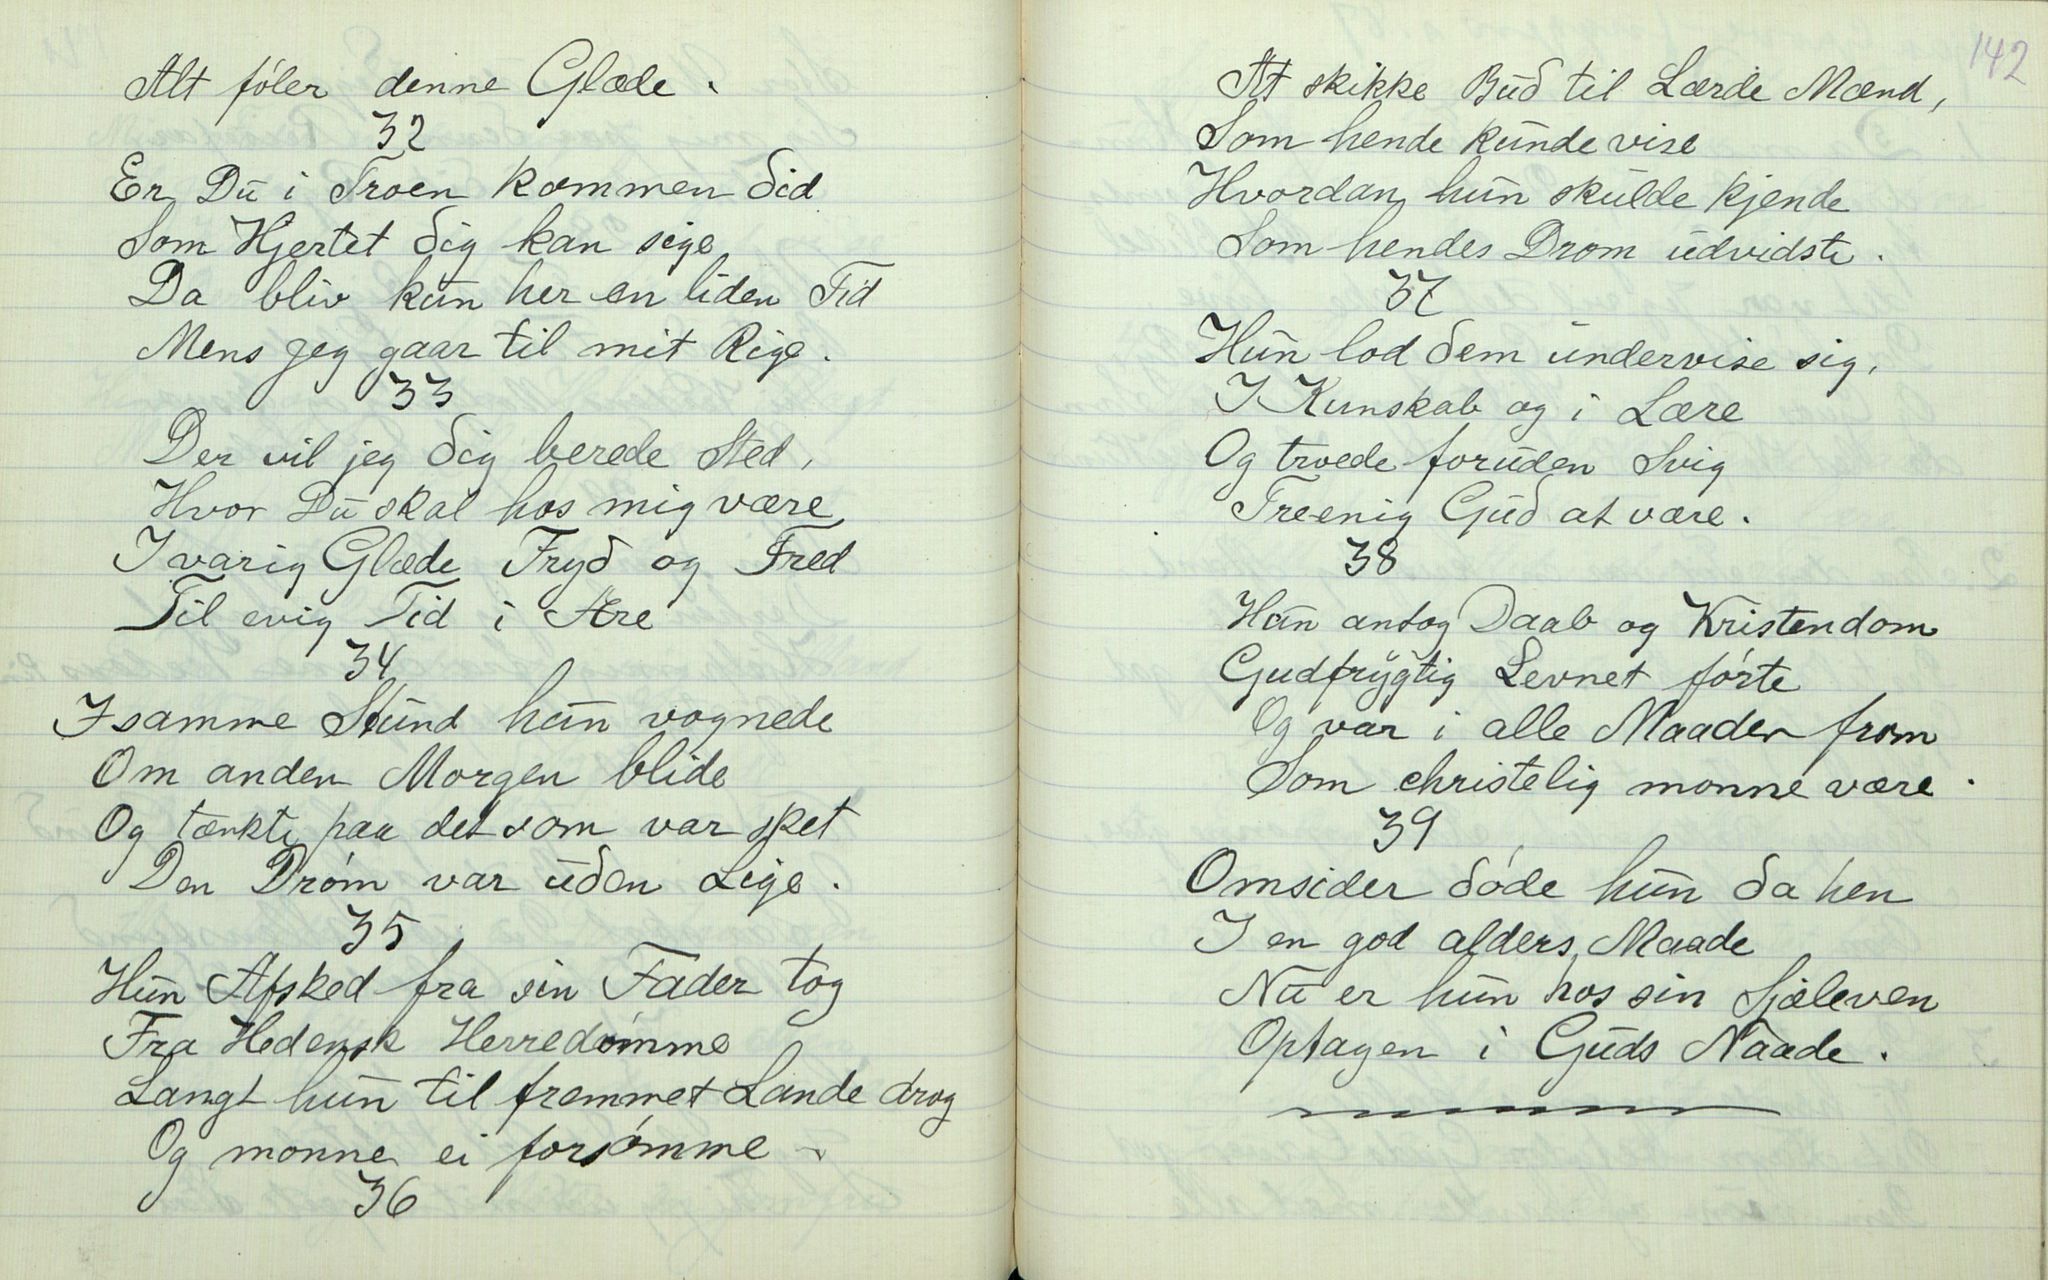 Alt føler denne Glæde.
32
Er Du i Troen kommen did
Som Hjertet dig kan sige
Da bliv kun her en liden Tid
Mens jeg gaar til mit Rige.
33
Der vil jeg dig berede Sted,
Hvor Du skal hos mig være
I varig Glæde Fryd og Fred
Til evig Tid i Ære
34
I samme Stund hun vognede
Om anden Morgen blide
Og tænkte paa det som var sket
Den Drøm var uden Lige.
35
Hun Afsked fra sin Fader tog
Fra Hedensk Herredømme
Langt hun til fremmet Lande drog
Og monne ei forsømme
36
142
At skikke Bud til Lærde Mænd,
Som hende kunde vise
Hvordan hun skulde kjende
Som hendes Drom udvidste.
37
Hun lod dem undervise sig,
I Kunskab og i Lære
Og troede foruden Svig
Treenig Gud at være.
38
Hun antog Daab og Kristendom
Gudfrygtig Levnet førte
Og var i alle Maader from
Som christelig monne være.
39
Omsider døde hun da hen
I en god alders Maade
Nu er hun hos sin Sjæleven
Optagen i Guds Naade.